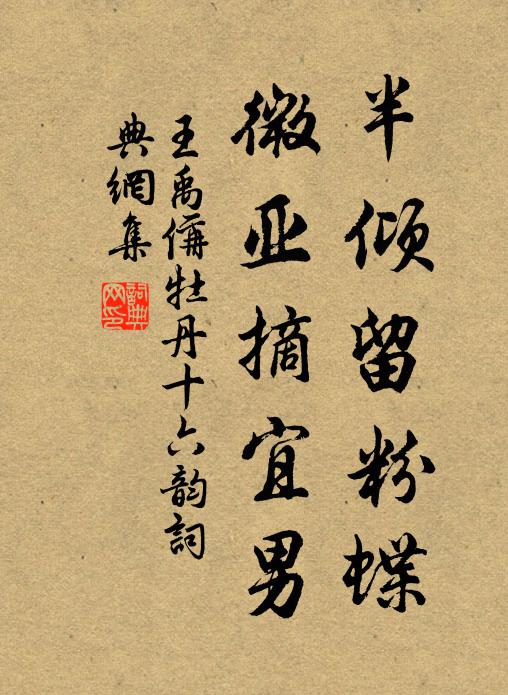 半倾留粉蝶
微亚摘宜男
王禹偁牡丹十六韵詞
典網集
詞典网印